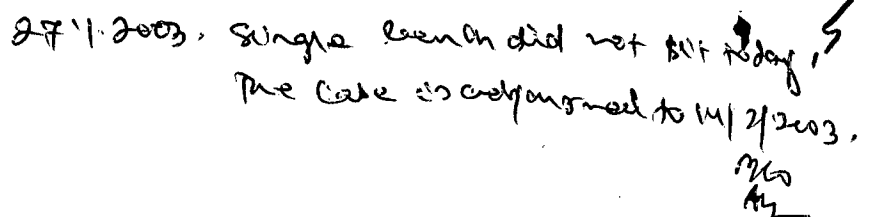 27.1.2003. Single bench did not sit today,
The case is adjourned to 14/2/2003.